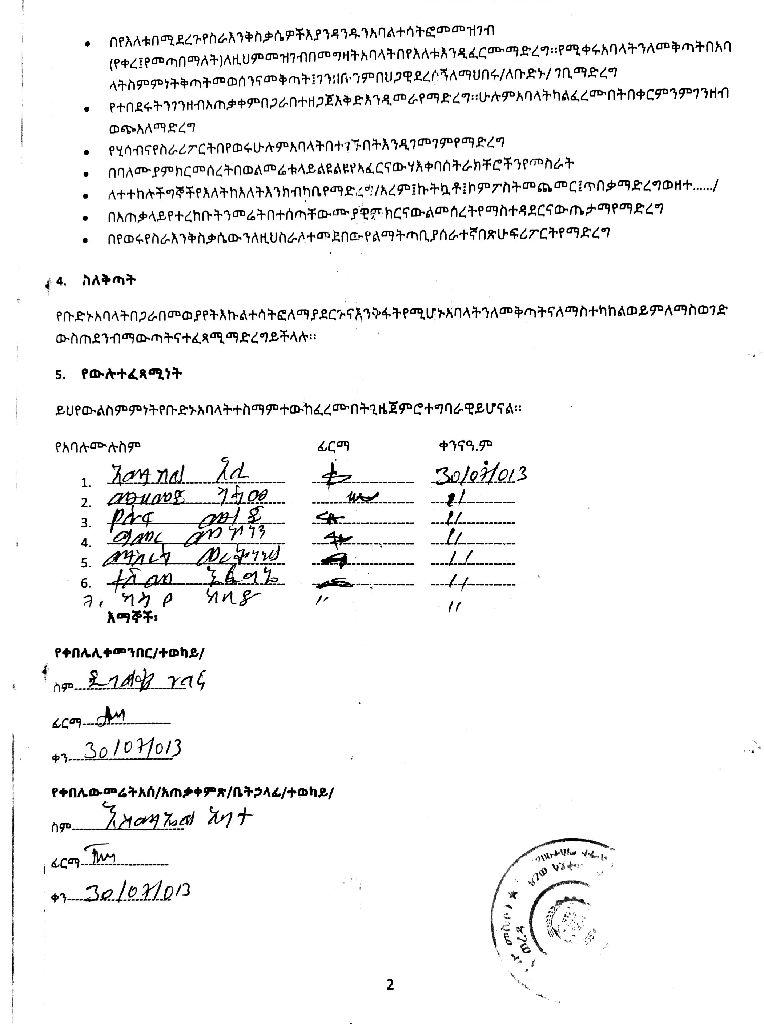 በየእለቱበሚደረጉየስራእንቅስቃሴዎችእያንዳንዱንአባልተሳትፎመመዝገብ
(የቀረ፤የመጣበማለት)ለዚህምመዝገብበመግዛትአባላትበየእለቱእንዲፈርሙማድረግ።የሚቀሩአባላትንለመቅጣትበአባ
ላትስምምነትቅጣትመወሰንናመቅጣት፤ገንዘቡንምበህጋዊደረሶኝለማህበሩ/ለቡድኑ/ ገቢማድረግ
የተበደሩትንገንዘብአጠቃቀምበጋራበተዘጋጀእቅድእንዲመራየማድረግ።ሁሉምአባላትካልፈረሙበትበቀርምንምገንዘብ
ወጭአለማድረግ
የሂሳብናየስራሪፖርትበየወሩሁሉምአባላትበተገኙበትእንዲገመገምየማድረግ
በባለሙያምክርመሰረትበወልመሬቱላይልዩልዩየአፈርናውሃእቀባስትራክቸሮችንየመስራት
ለተተከሉችግኞችየእለትከእለትእንክብካቤየማድረግ/አረም፤ኩትኳቶ፤ኮምፖስትመጨመር፤ጥበቃማድረግወዘተ....../
በአጠቃላይየተረከቡትንመሬትበተሰጣቸውሙያዊምክርናውልመሰረትየማስተዳደርናውጤታማየማድረግ
በየወሩየስራእንቅስቃሴውንለዚህስራለተመደበውየልማትጣቢያሰራተኛበጽሁፍሪፖርትየማድረግ
4. ስለቅጣት
የቡድኑአባላትበጋራበመወያየትእኩልተሳትፎለማያደርጉናእንቅፋትየሚሆኑአባላትንለመቅጣትናለማስተካከልወይምለማስወገድ
ውስጠደንብማውጣትናተፈጻሚማድረግይችላሉ።
5. የውሉተፈጻሚነት
ይህየውልስምምነትየቡድኑአባላትተስማምተውከፈረሙበትጊዜጀምሮተግባራዊይሆናል።
የአባሉሙሉስም ፊርማ ቀንናዓ.ም
1. 30/07/013
2. 〃
3. 〃
4. 〃
5. 〃
6. 〃
7. 〃 〃
እማኞች፡
የቀበሌሊቀመንበር/ተወካይ/
ስም
ፊርማ
ቀን 30/07/013
የቀበሌውመሬትአስ/አጠቃቀምጽ/ቤትኃላፊ/ተወካይ/
ስም
ፊርማ
ቀን 30/07/013
2